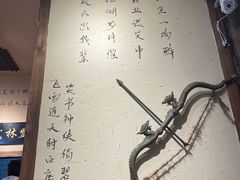 生一场醉
业谈笑中
江湖岁月催
云出我辈
笑书神侠倚碧
飞雪连天射白鹿
林